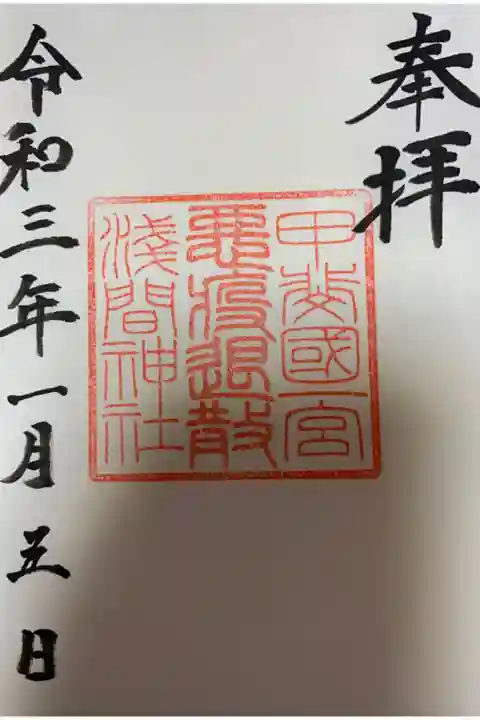 奉拝
甲斐國一宮
悪疫退散
淺間神社
令和三年一月五日